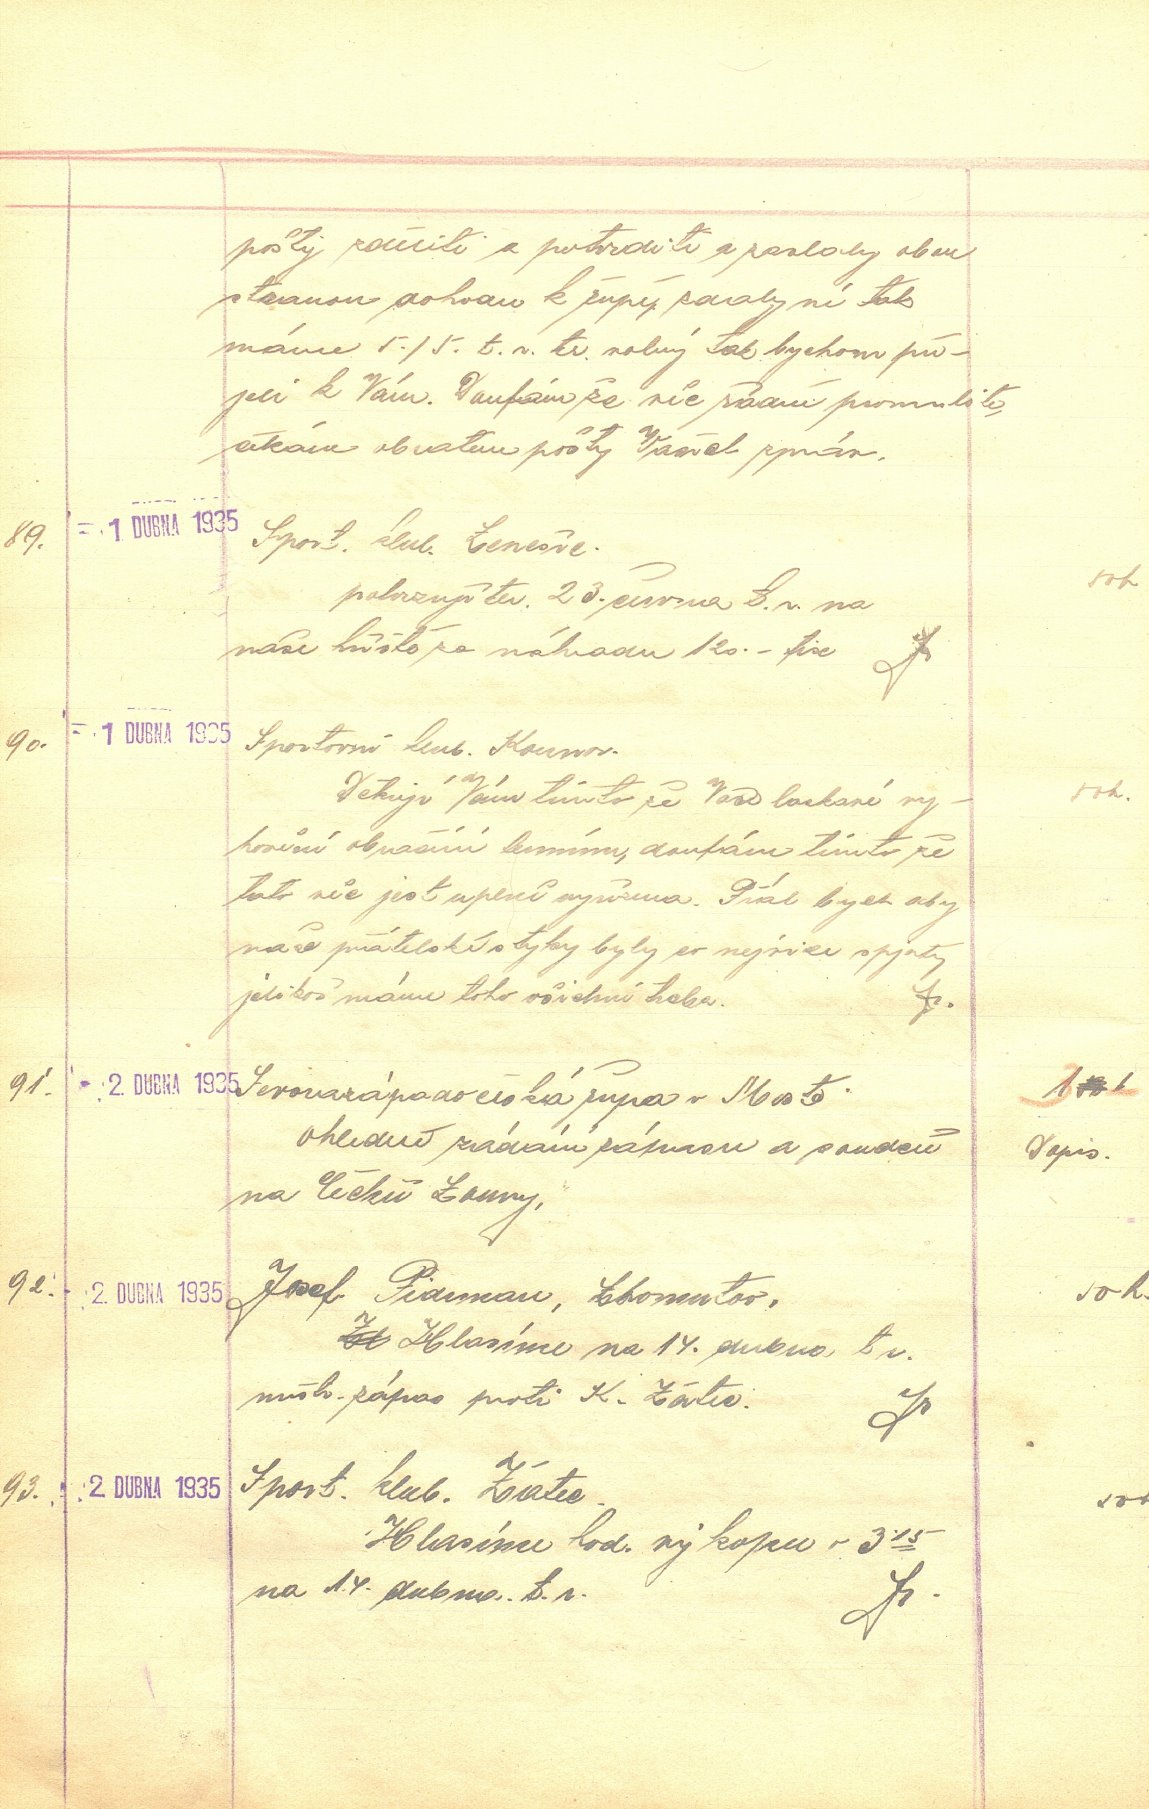 pošty zdělíti a potvrditi a zaslaly obou
stranou dohodu k župě, zdaly ní tak
máme 5./5. t. r. ter. volný tak bychom při-
jeli k Vám. Doufám že věc řádně promulite,
čekám obratem pošty Vašich zpráv.
89. 1 DUBNA 1935 Sport. klub. Lenešice.
50h
potvrzuji ter. 23. června t. r. na
naše hřiště za náhradu 120.- fix Jr
90. 1 DUBNA 1935 Sportovní klub. Kounov.
Děkuji Vám tímto že Vaše laskavé vy-
50h.
hovění ohlašní termínu, doufám tímto že
tato věc jest uplně vyřízena. Přál bych aby
naše přátelské styky byly co nejvíce spjaty
jelikož máme toho všichni třeba. Jr.
91. 2. DUBNA 1935 Severozápadočeská župa v Mostě
1 h
ohledně žádání zápasu a soudců
Dopis.
na Čečků Louny,
92. 2. DUBNA 1935 Josef Piduman, Chomutov.
50 h.
Hlasíme na 14. dubna t r.
mistr. zápas proti K. Žatec. Jr
93. 2. DUBNA 1935 Sport. klub. Žatec.
50h
Hlasíme hod. výkopu v 3.15
na 14. dubna. t. r. Jr.